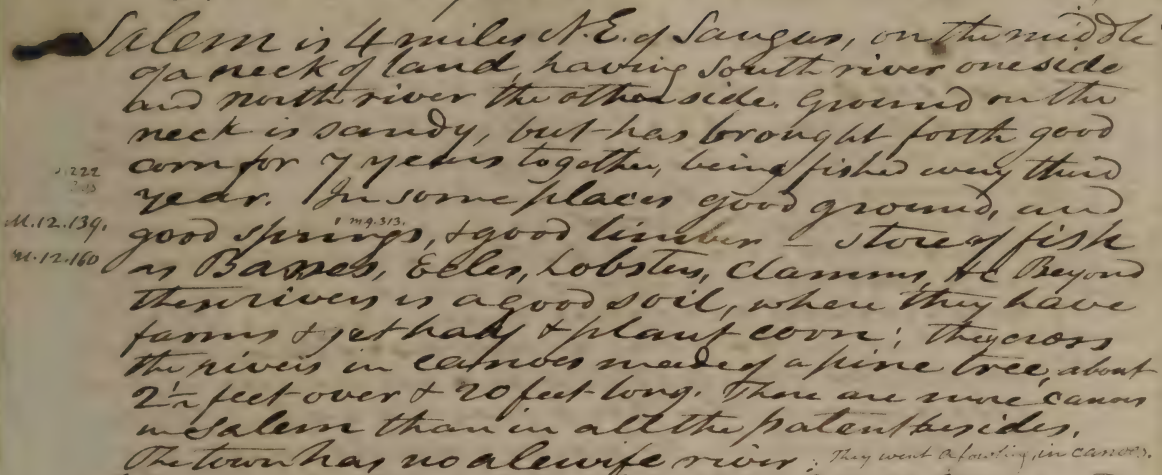 Salem is 4 miles N.E. of Saugus, on the middle
of a neck of land, having South river one side
and north river the other side. Ground on the
neck is sandy, but has brought forth good
corn for 7 years together, being fished every third
222
year. In some places good ground, and
1 m.9.313.
M.12.139. good springs, & good timber – store of fish
M.12.160 as Basses, Eeles, Lobsters, Clamms, &c Beyond
these rivers is a good soil, where they have
farms & get hay & plant corn; they cross
the rivers in canoes made of a pine tree, about
2½ feet over & 20 feet long. There are more canoes
in Salem than in all the patent besides.
The town has no alewife river. They went a fowling in canoes.